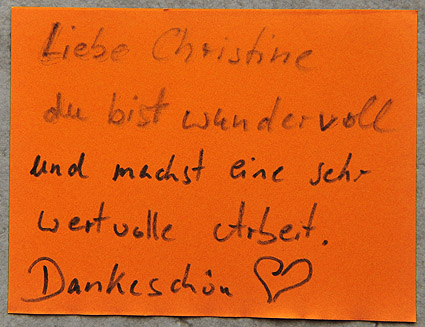 Liebe Christine
du bist wundervoll
und machst eine sehr
wertvolle Arbeit.
Dankeschön ♡